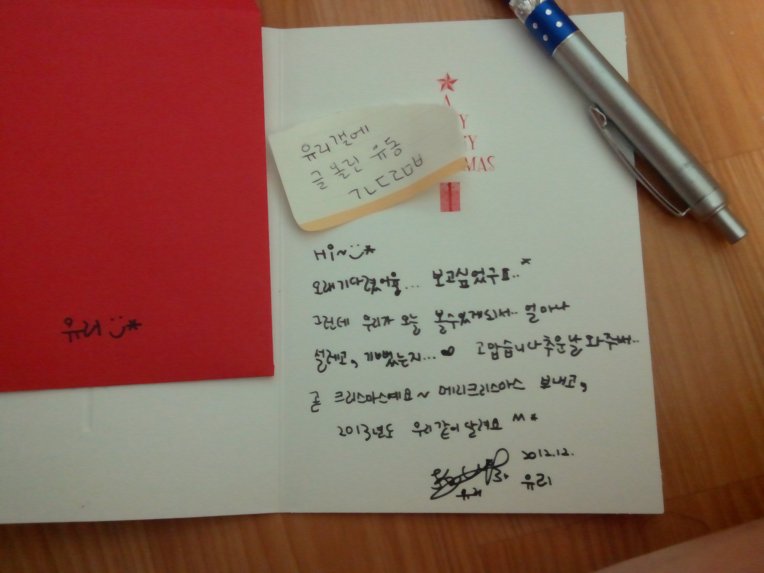 유리갤에
글 올린 유동
ㄱㄴㄷㄹㅁㅂ
MAS
Hi~
오래기다렸어용... 보고싶었구요..
그런데 우리가 오늘 볼수있게되서.. 얼마나
설레고, 기뻤는지... 고맙습니다 추운날 와주셔..
곧 크리스마스예요~ 메리크리스마스 보내고,
2013년도 우리같이 달려요
2012.12.
유리
유리
유리